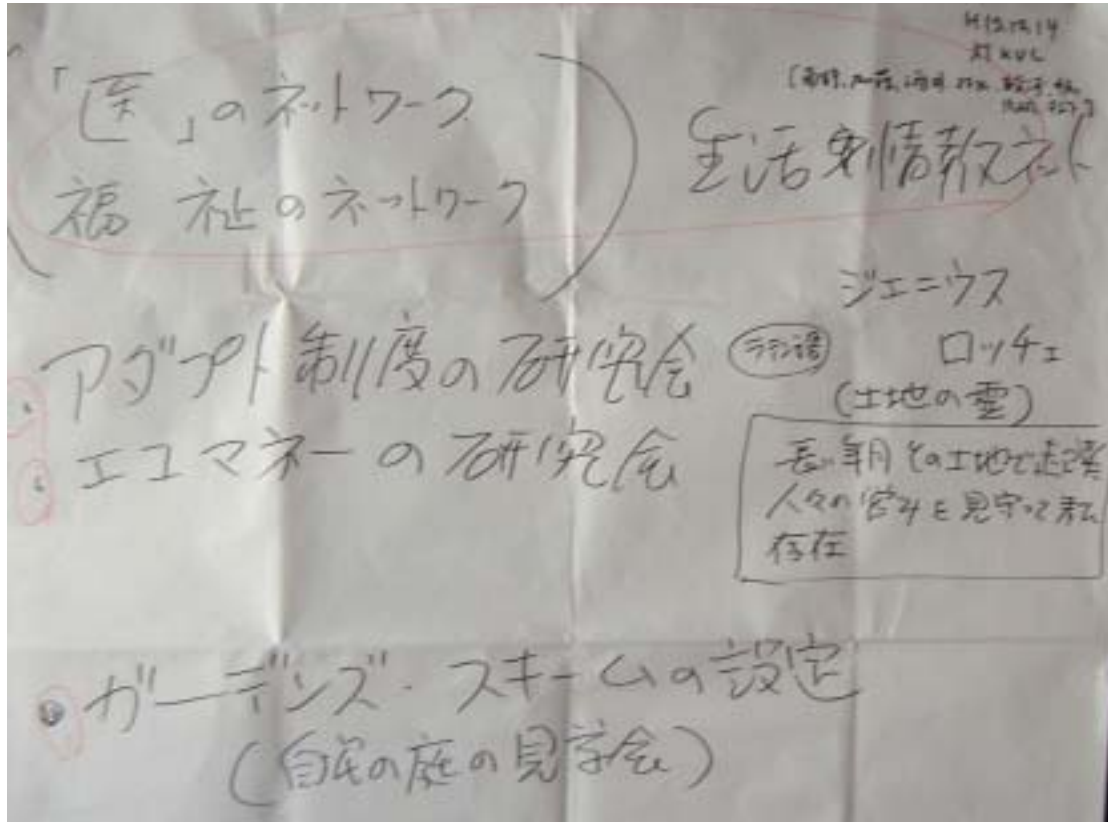 H12.12.14
「医」のネットワーク
福祉のネットワーク
生活 情報ネット
アダプト制度の研究会
エコマネーの研究会
ジェニウス
ラテン語
ロッチェ
(土地の霊)
長い年月その土地で
人々の営みを見守って
存在
ガーデンズ・スキームの設定
(自宅の庭の見学会)